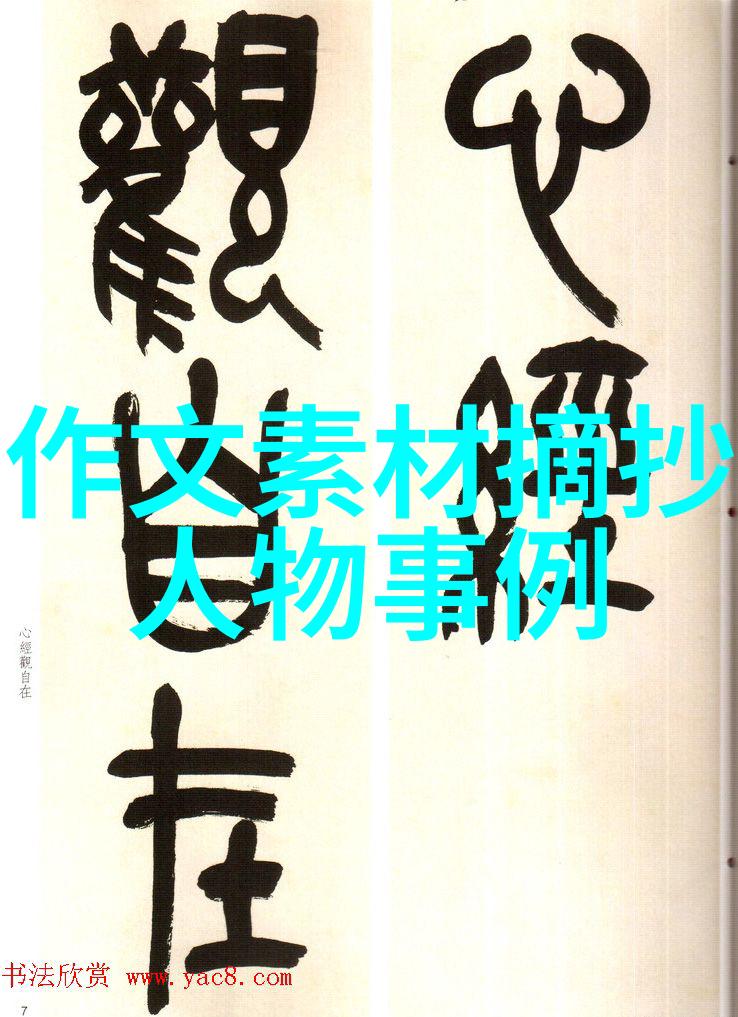 心經
觀自在
作文素材摘抄
人物事例
心經觀自在
书法欣赏 www.yac8.com
7